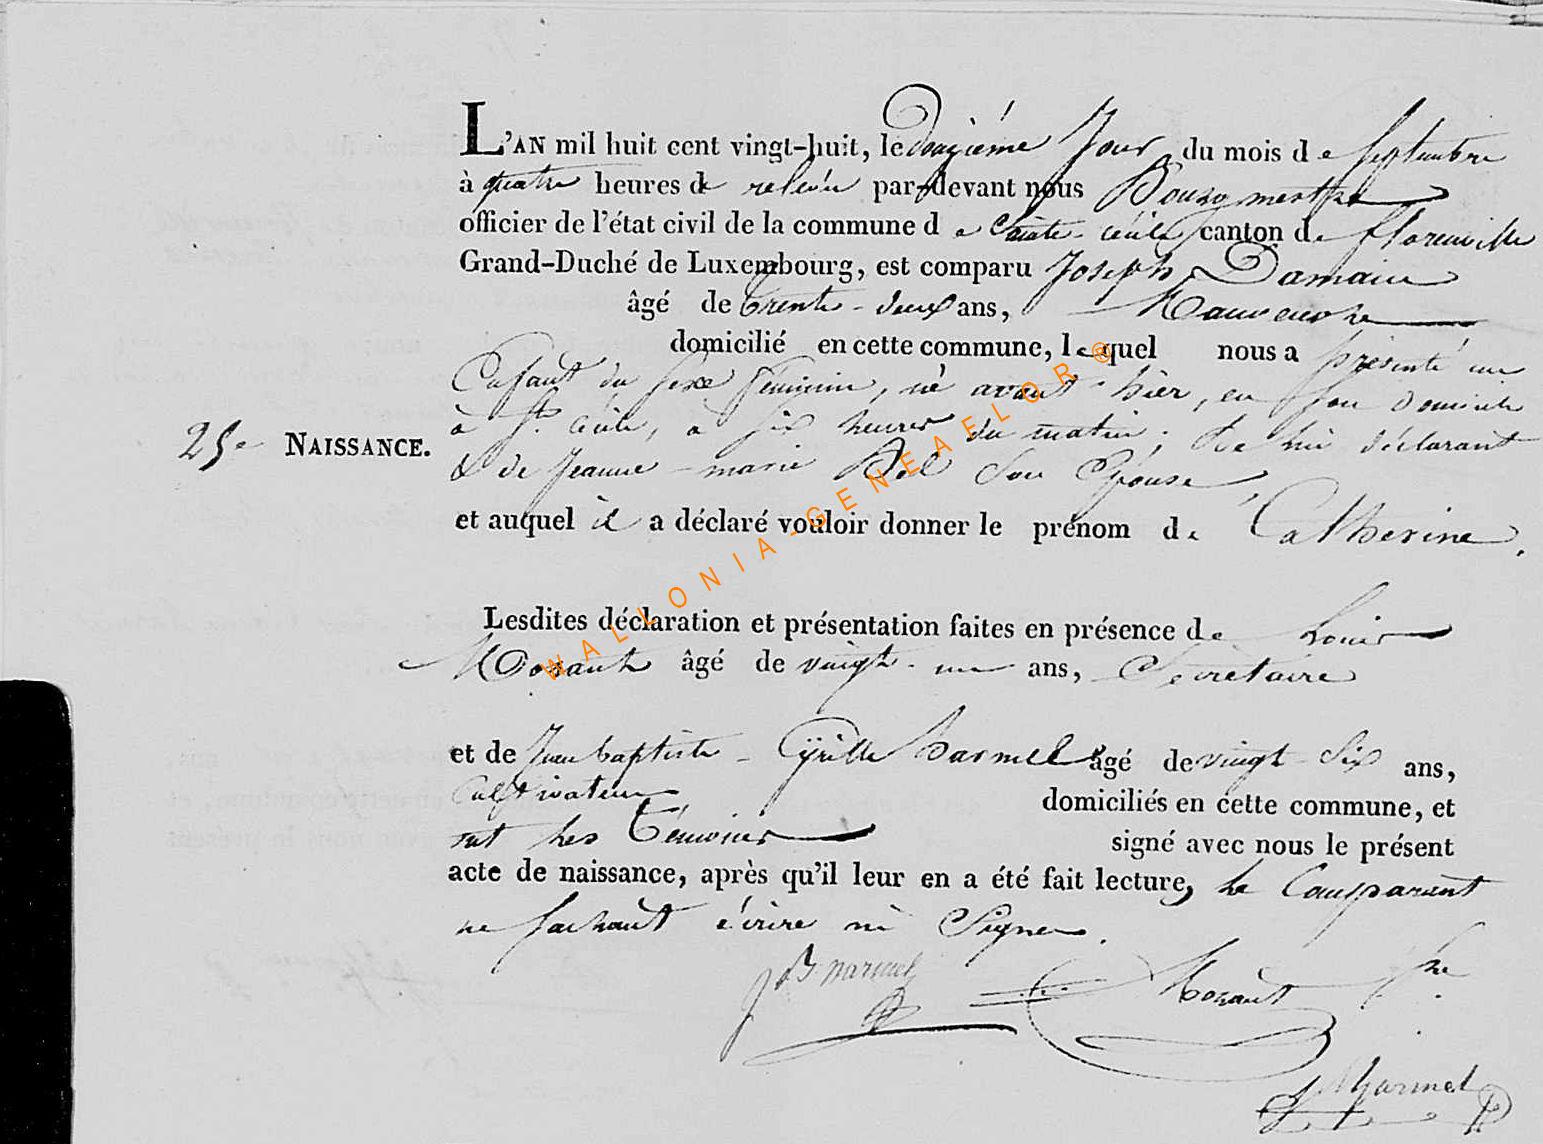 L'AN mil huit cent vingt-huit, le douzième jour du mois de septembre
à quatre heures de relevée par-devant nous Bourgmestre
officier de l'état civil de la commune de Sainte Cécile canton de florenville
Grand-Duché de Luxembourg, est comparu Joseph Damain
âgé de trente-deux ans, Manoeuvre
domicilié en cette commune, lequel nous a présenté un
Enfant du sexe féminin, né avant-hier, en son domicile
à St Cécile, à six heures du matin; de lui déclarant
25e NAISSANCE.
& de Jeanne-marie Bol son Epouse,
et auquel il a déclaré vouloir donner le prénom de Catherine.
Lesdites déclaration et présentation faites en présence de Louis
Mozant âgé de vingt-un ans, Secrétaire
et de Jean baptiste Cyrille Marmel âgé de vingt-Six ans,
Cultivateur domiciliés en cette commune, et
ont les Témoins signé avec nous le présent
acte de naissance, après qu'il leur en a été fait lecture, le Comparant
ne sachant écrire ni Signer.
JB marmel Mozant
Marmel
WALLONIA-GENEAELOR®